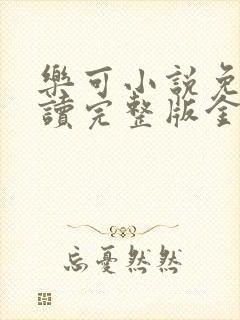 樂可小說免
讀完整版全
忘憂然然